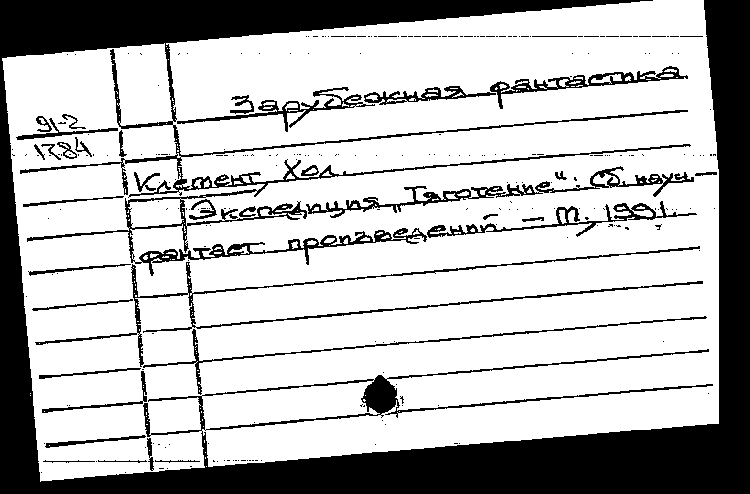 Зарубежная фантастика
91-2
1784
Клемент, Хол.
Экспедиция „Тяготение“: Сб. науч.-
фантаст. произведений. – М., 1991.